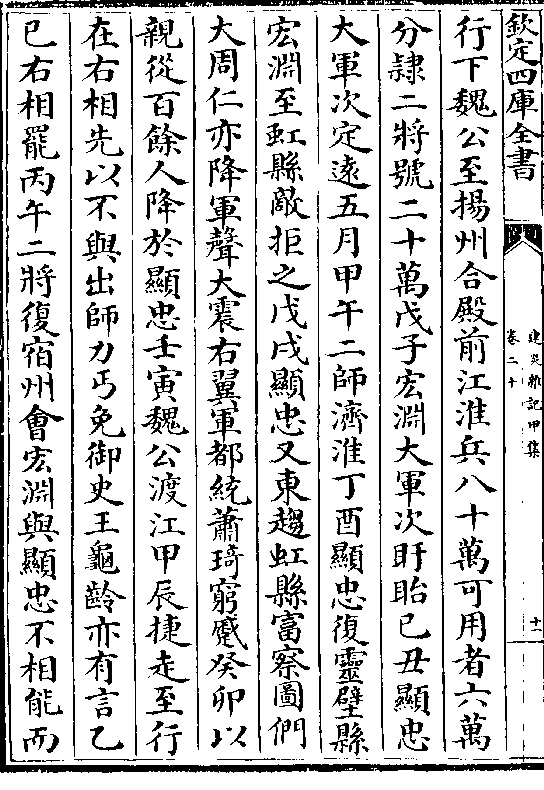 欽定四庫全書
建炎雜記甲集
卷二十
十一
行下魏公至揚州合殿前江淮兵八十萬可用者六萬
分隷二將號二十萬戊子宏淵大軍次盱眙已丑顯忠
大軍次定遠五月甲午二師濟淮丁酉顯忠復靈壁縣
宏淵至虹縣敵拒之戊戌顯忠又東趨虹縣富察圖們
大周仁亦降軍聲大震右翼軍都統蕭琦窮蹙癸卯以
親從百餘人降於顯忠壬寅魏公渡江甲辰捷走至行
在右相先以不與出師力丐免御史王龜齡亦有言乙
已右相罷丙午二將復宿州會宏淵與顯忠不相能而